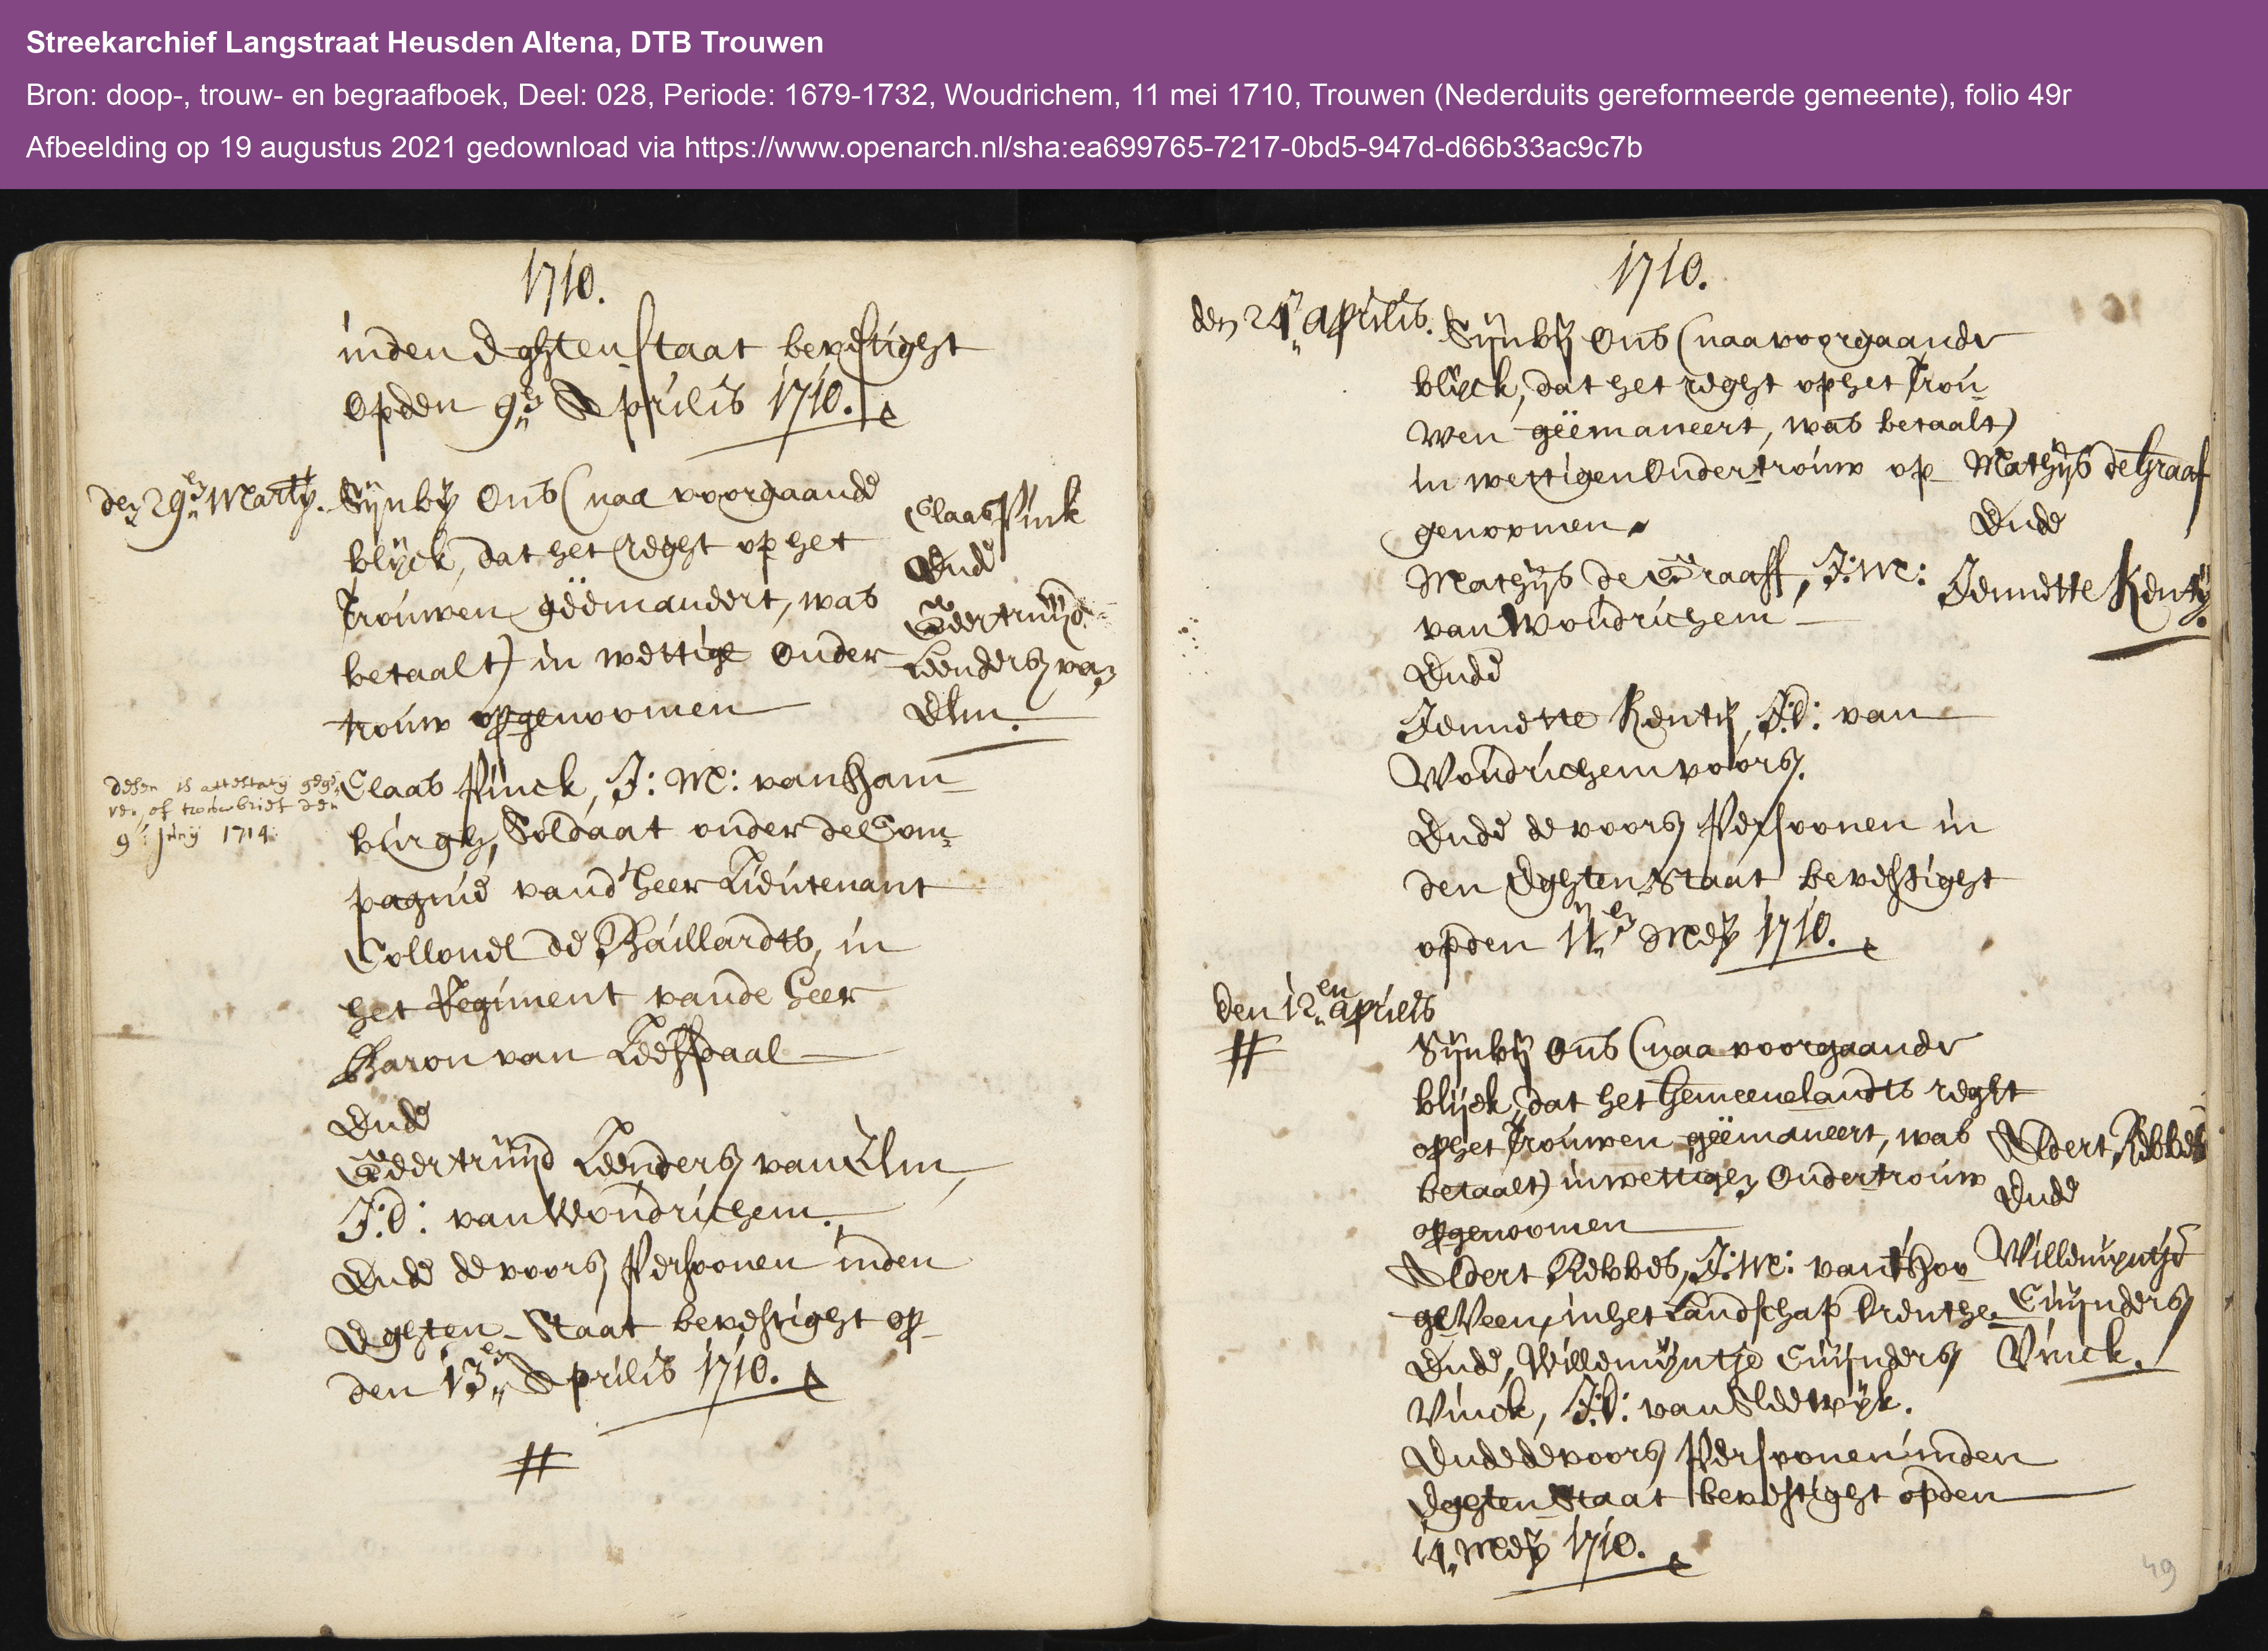 Streekarchief Langstraat Heusden Altena, DTB Trouwen
Bron: doop-, trouw- en begraafboek, Deel: 028, Periode: 1679-1732, Woudrichem, 11 mei 1710, Trouwen (Nederduits gereformeerde gemeente), folio 49r
Afbeelding op 19 augustus 2021 gedownload via https://www.openarch.nl/sha:ea699765-7217-0bd5-947d-d66b33ac9c7b
1710.
inden Eghten staat bevestight
opden 9en Aprilis 1710.
den 29en Marty.
Sijn bij Ons (naa voorgaande
blijck, dat het reght op het
trouwen geëmaneert, was
betaalt) in wettige Onder
trouw opgenoomen
Claas Vink
Ende
Geertruijd
Leenders van
Elm.
desen is attestaty gege
ven, of trouwbrief den
9 Juny 1714
Claas Vinck, J: M: van Ham
burgh, Soldaat onder de Com
pagnie vand' heer Lieutenant
Collonel de Baillardts, in
het Regiment vande heer
Baron van Leefdaal
Ende
Geertruijd Leenders van Elm,
J:D: van Woudrichem.
Ende de voors Persoonen inden
Eghten Staat bevestight op
den 13en Aprilis 1710.
#
1710.
den 24en Aprilis.
Sijn bij Ons (naa voorgaande
blijck, dat het reght op het Trou
wen geëmaneert, was betaalt)
in wettigen Ondertrouw op
genoomen
Mathijs de Graaf
Ende
Jennette Kentij.
Mathijs de Graaff, J:M:
van Woudrichem
Ende
Jennette Kentij, J:D: van
Woudrichem voors.
Ende de voors Persoonen in
den Eghten Staat bevestight
opden 11en Meij 1710.
den 12en Aprilis
#
Sijn bij Ons (naa voorgaande
blijck, dat het Gemeenelandts reght
op het Trouwen geëmaneert, was
betaalt) in wettigen Ondertrouw
opgenoomen
Aldert Rebbes
Ende
Willemyntje
Cuijnders
Vinck.
Aldert Rebbes, J:M: van 't Hoo
geVeen, in het Landschap Drenthe.
Ende, Willemijntje Cuijnders
Vinck, J:D: van Sleewijk.
Ende de voors Persoonen inden
Eghten Staat bevestight opden
14 Meij 1710.
49